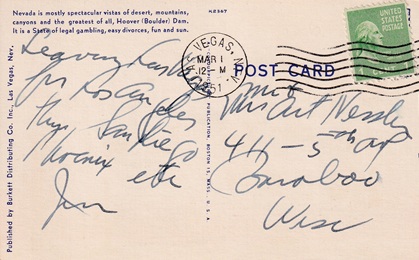 Nevada is mostly spectacular vistas of desert, mountains,
canyons and the greatest of all, Hoover (Boulder) Dam.
It is a State of legal gambling, easy divorces, fun and sun.
Leaving
for Los Angeles
San Diego
Phoenix etc
Jim
Published by Burkett Distributing Co. Inc., Las Vegas, Nev.
LAS VEGAS, NEV.
MAR 1
12 - M
1951
UNITED
STATES
POSTAGE
POST CARD
Mrs Art
411 - 5th av
Baraboo
Wisc